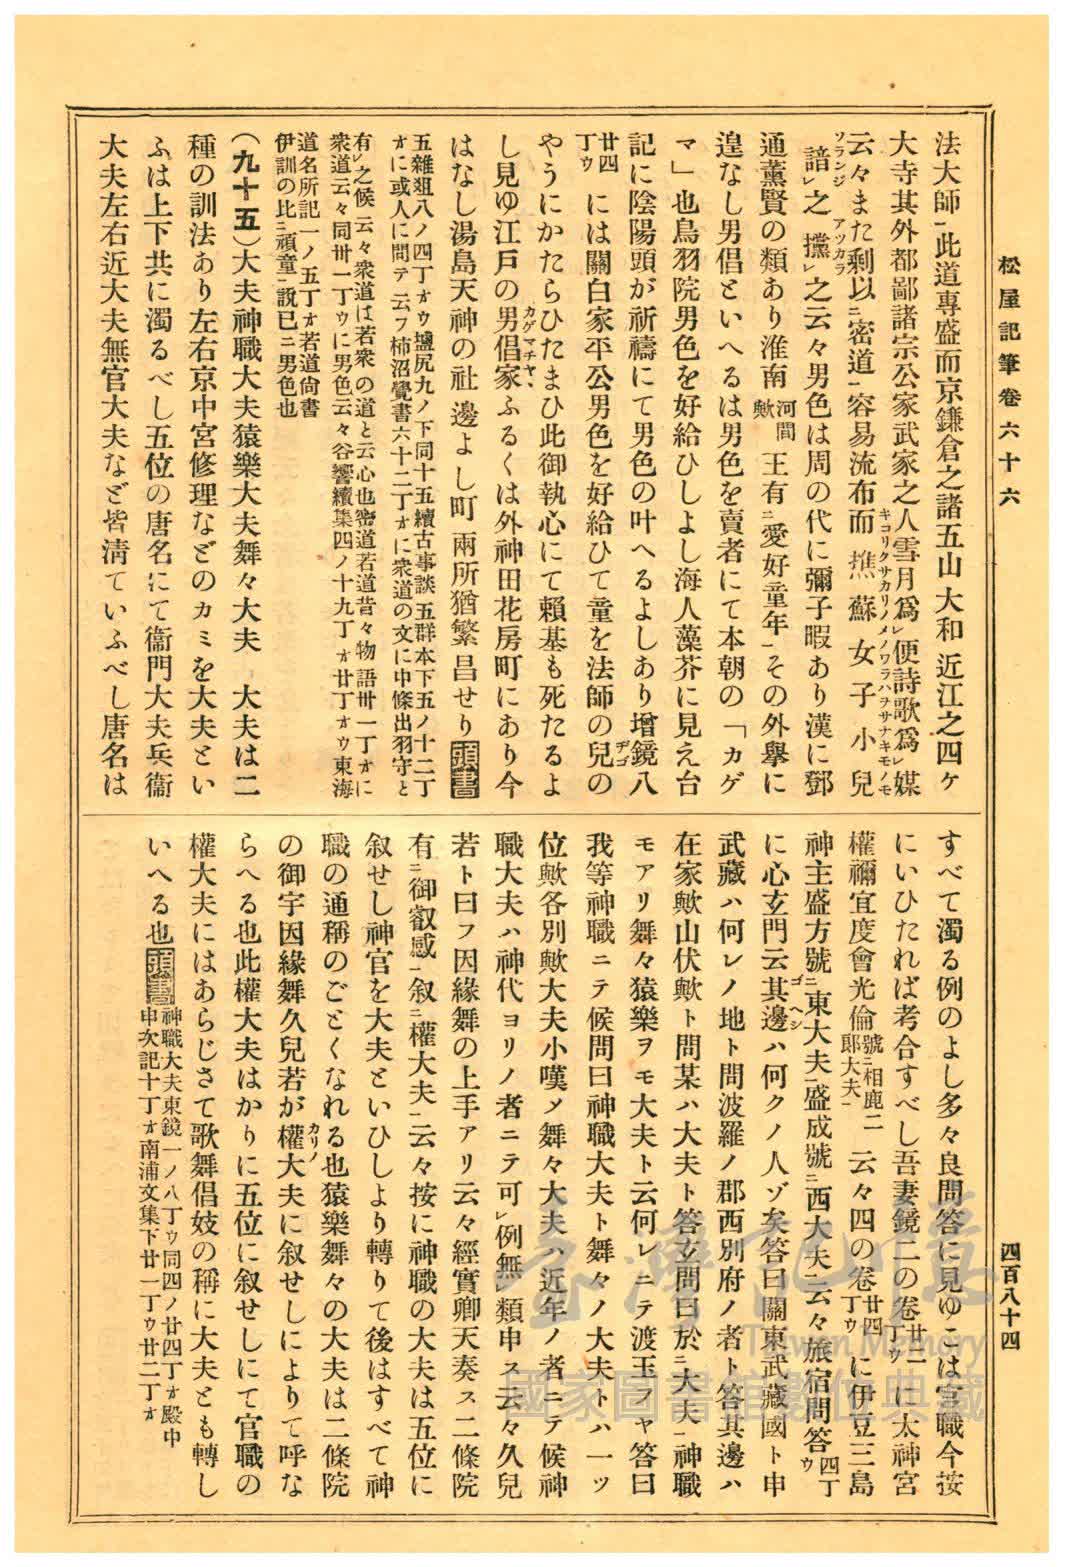 松屋記筆卷六十六
四百八十四
法大師一此道專盛而京鎌倉之諸五山大和近江之四ケ
大寺其外都鄙諸宗公家武家之人雪月爲レ便詩歌爲レ媒
云々また剩以ニ密道一容易流布而 撨蘇女子小兒
キコリクサカリノメノワラハヲサナキモノモ
諳レ之 攩レ之云々男色は周の代に彌子暇あり漢に鄧
ソランジ アツカラ
通董賢の類あり淮南河間歟王有ニ愛好童年一その外擧に
遑なし男倡といへるは男色を賣者にて本朝の「カゲ
マ」也鳥羽院男色を好給ひしよし海人藻芥に見え台
記に陰陽頭が祈禱にて男色の叶へるよしあり增鏡八
廿四丁ウには關白家平公男色を好給ひて童を法師の兒の
ヂゴ
やうにかたらひたまひ此御執心にて賴基も死たるよ
し見ゆ江戸の男倡家ふるくは外神田花房町にあり今
カゲマチヤヽ
はなし湯島天神の社邊よし町兩所猶繁昌せり頭書
五雜爼八ノ四丁オウ鹽尻九ノ下同十五續古事談五群本下五ノ十二丁
オに或人に問テ云フ柿沼覺書六十二丁オに衆道の文に中條出羽守と
有レ之候云々衆道は若衆の道と云心也密道若道昔々物語卅一丁オに
衆道云々同卅一丁ウに男色云々谷響續集四ノ十九丁オ廿丁オウ東海
道名所記一ノ五丁オ若道尙書
伊訓の比ニ頑童一說已ニ男色也
(九十五)大夫神職大夫猿樂大夫舞々大夫 大夫は二
種の訓法あり左右京中宮修理などのカミを大夫とい
ふは上下共に濁るべし五位の唐名にて衞門大夫兵衞
大夫左右近大夫無官大夫など皆淸ていふべし唐名は
すべて濁る例のよし多々良問答に見ゆこは官職今按
にいひたれば考合すべし吾妻鏡二の卷廿一丁ウに太神宮
權禰宜度會光倫號ニ相鹿二郞大夫一云々四の卷廿四丁ウに伊豆三島
神主盛方號ニ東大夫一盛成號ニ西大夫一云々旅宿問答四丁ウ
に心玄門云其邊ハ何クノ人ゾ矣答曰關東武藏國ト申
ゴヘン
武藏ハ何レノ地ト問波羅ノ郡西別府ノ者ト答其邊ハ
在家歟山伏歟ト問某ハ大夫ト答玄問曰於ニ大夫一神職
モアリ舞々猿樂ヲモ大夫ト云何レニテ渡玉フヤ答曰
我等神職ニテ候問曰神職大夫ト舞々ノ大夫トハ一ッ
位歟各別歟大夫小嘆メ舞々大夫ハ近年ノ者ニテ候神
職大夫ハ神代ヨリノ者ニテ可レ例無レ類申ス云々久兒
若ト曰フ因緣舞の上手アリ云々經實卿天奏ス二條院
有ニ御叡感一叙ニ權大夫一云々按に神職の大夫は五位に
叙せし神官を大夫といひしより轉りて後はすべて神
職の通稱のごとくなれる也猿樂舞々の大夫は二條院
の御宇因緣舞久兒若が權大夫に叙せしによりて呼な
カリノ
らへる也此權大夫はかりに五位に叙せしにて官職の
權大夫にはあらじさて歌舞倡妓の稱に大夫とも轉し
いへる也頭書神職大夫東鏡一ノ八丁ウ同四ノ廿四丁オ殿中
申次記十丁オ南浦文集下廿一丁ウ廿二丁オ
臺灣記憶
Taiwan Memory
國家圖書館數位典藏